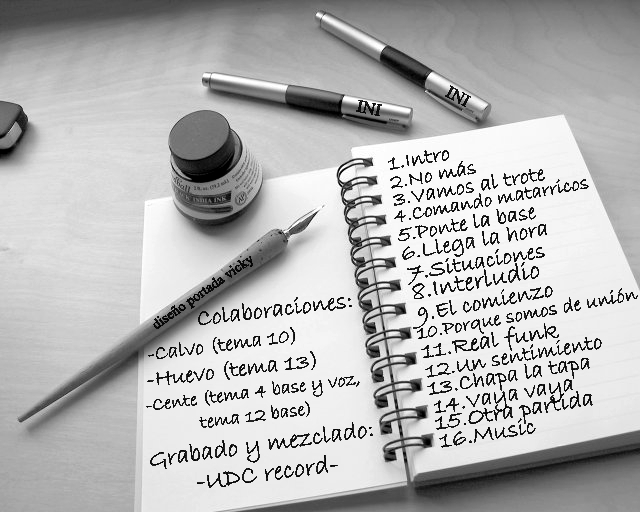 INI
INI
INDIA INK
diseño portada vicky
Colaboraciones:
-Calvo (tema 10)
-Huevo (tema 13)
-Cente (tema 4 base y voz,
tema 12 base)
Grabado y mezclado:
-UDC record-
1.Intro
2.No más
3.Vamos al trote
4.Comando matarricos
5.Ponte la base
6.Llega la hora
7.Situaciones
8.Interludio
9.El comienzo
10.Porque somos de unión
11.Real funk
12.Un sentimiento
13.Chapa la tapa
14.Vaya vaya
15.Otra partida
16.Music